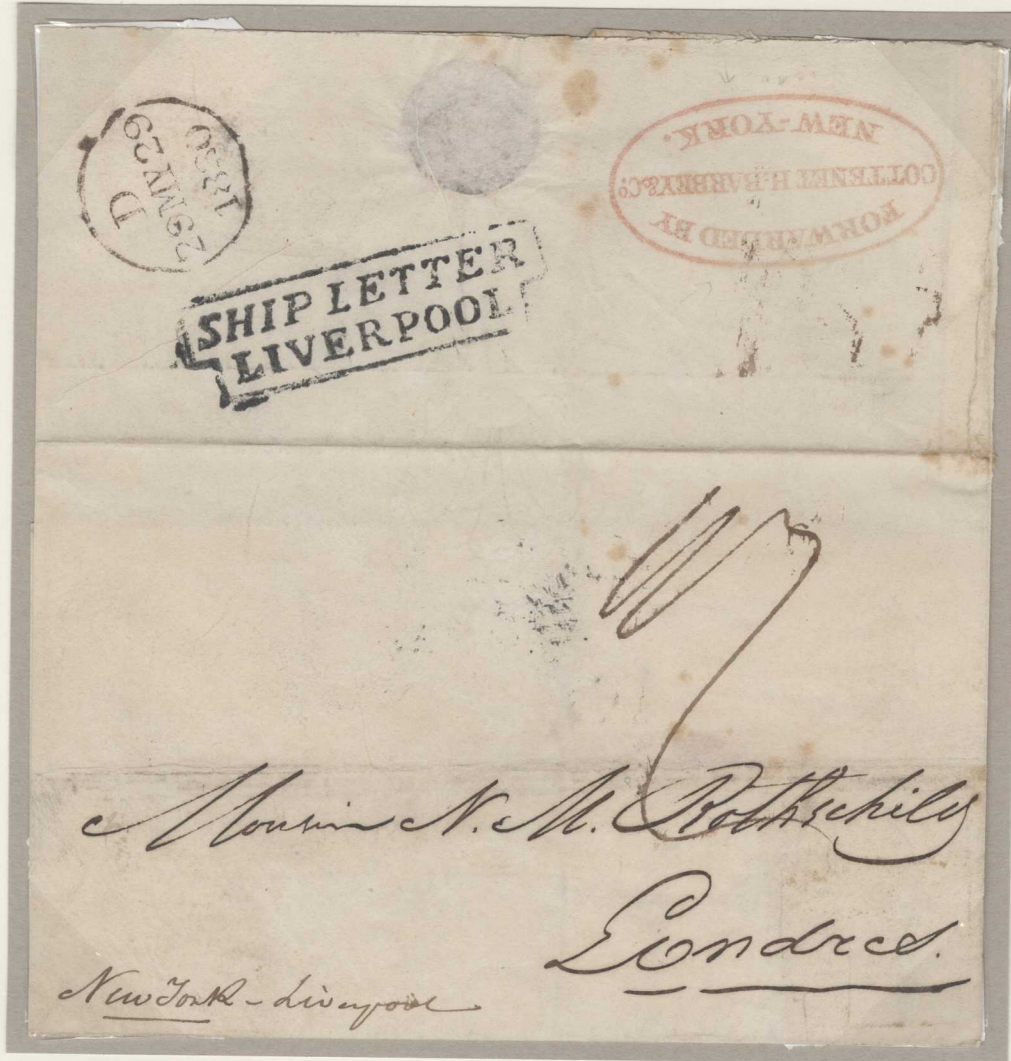 D
29MY29
1830
FORWARDED BY
COTTENET H. BARBEY & Co.
NEW-YORK.
SHIP LETTER
LIVERPOOL
Monsieur N. M. Rothschild
Londres.
New York - Liverpool